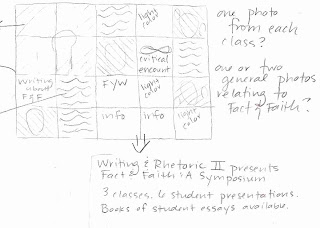 light
color
one photo
from each
class?
critical
encount
one or two
general photos
relating to
Fact & Faith?
writing
about
F&F
FYW
light
color
info
info
light
color
Writing & Rhetoric II presents
Fact & Faith: A Symposium
3 classes. 6 student presentations.
Books of student essays available.